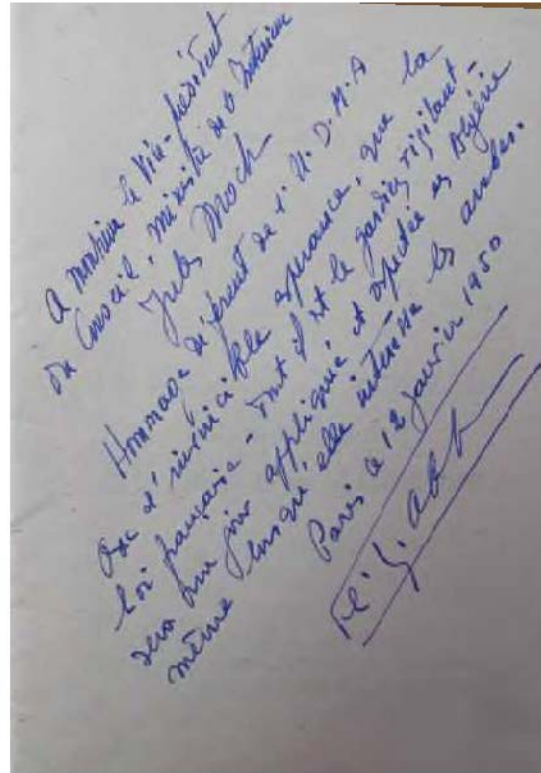 A Monsieur le Vice-président
du Conseil, ministre de l'Intérieur
Jules Moch
Hommage déférent de l'U.D.M.A
avec l'invincible espérance, que la
loi française - dont il est le gardien vigilant -
sera un jour appliquée et respectée en Algérie
même lorsqu'elle intéresse les arabes.
Paris le 12 janvier 1950